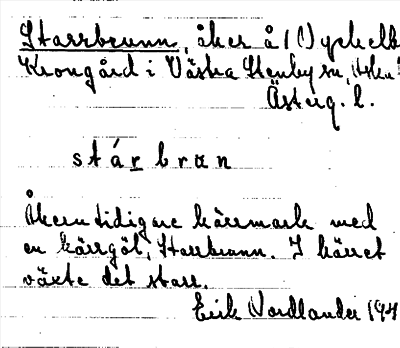 Starrbrunn, åker å (1) yckelb
Krongård i Västra Stenby sn,
Österg. l.
stárbrøn
Åkern tidigare kärrmark med
en kärrgöl, Starrbrunn. I kärret
växte det starr.
Erik Nordlander 194